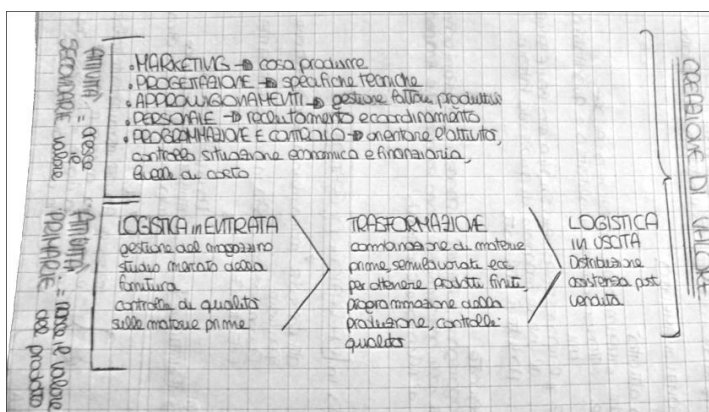 ATTIVITÀ = cresce
SECONDARIE il valore
• MARKETING → cosa produrre
• PROGETTAZIONE → specifiche tecniche
• APPROVVIGIONAMENTI → gestione fattori produttivi
• PERSONALE → reclutamento e coordinamento
• PROGRAMMAZIONE E CONTROLLO → orientare l'attività,
controllo situazione economica e finanziaria,
quella di costo
ATTIVITÀ = nasce il valore
PRIMARIE del prodotto
LOGISTICA in ENTRATA
gestione del magazzino
studio mercato della
fornitura
controllo di qualità
sulle materie prime
TRASFORMAZIONE
combinazione di materie
prime, semilavorati ecc
per ottenere prodotti finiti,
programmazione della
produzione, controllo
qualità
LOGISTICA
IN USCITA
Distribuzione
assistenza post
vendita
CREAZIONE DI VALORE